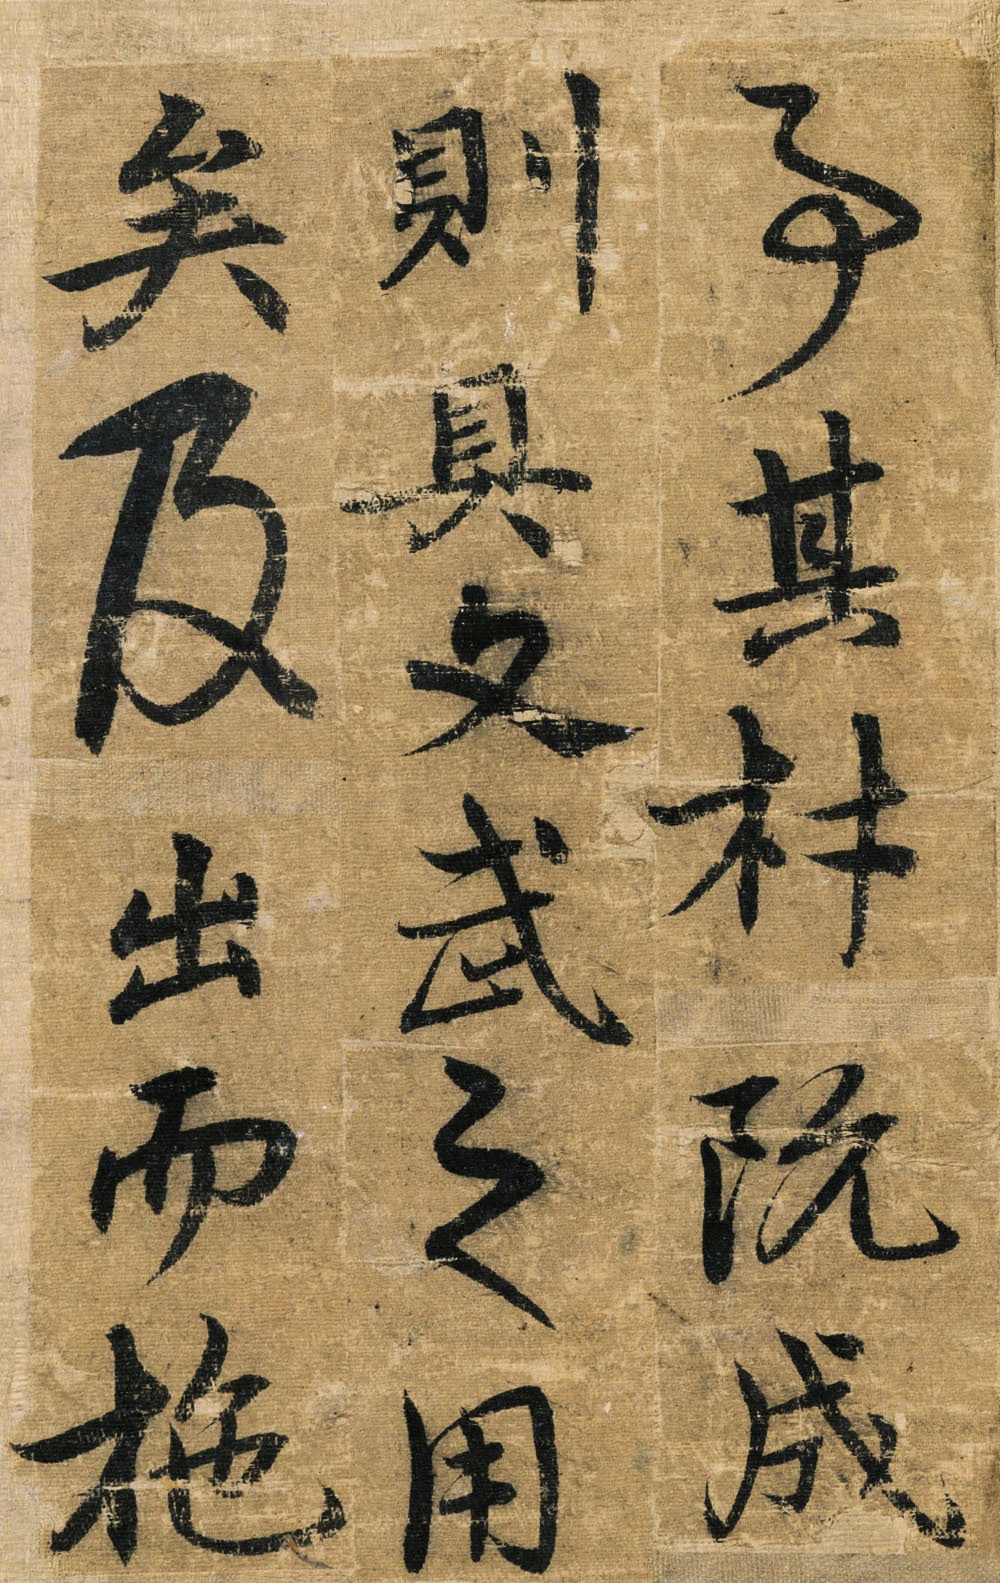 事其材既成
則具文武之用
矣及出而施